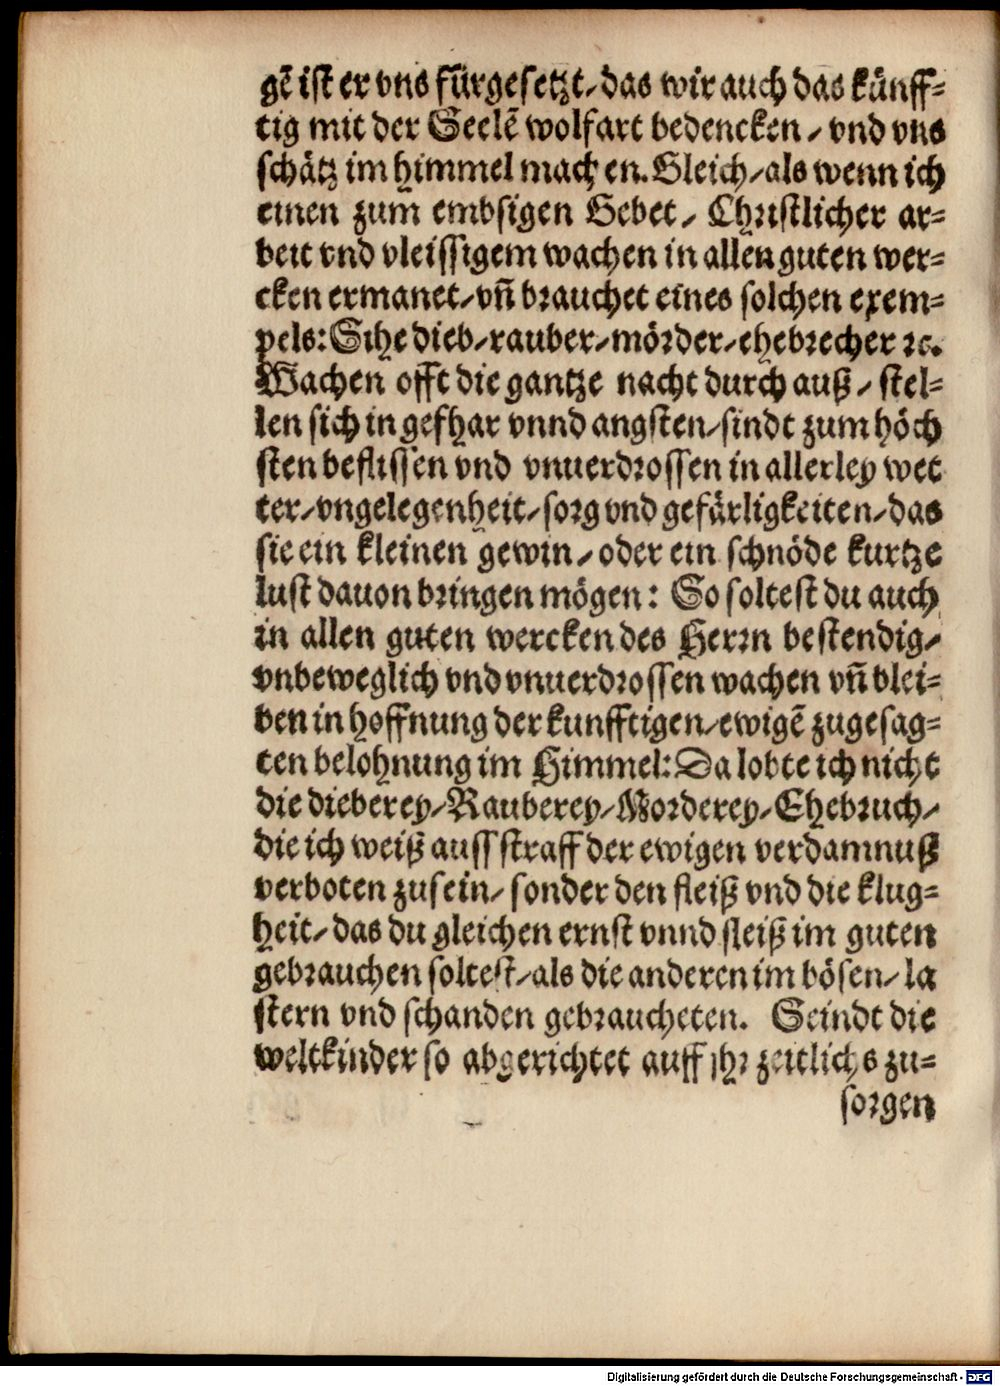 gē ist er vns fürgesetzt / das wir auch das künff=
tig mit der Seelē wolfart bedencken / vnd vns
schätz im himmel mach en. Gleich / als wenn ich
einen zum embsigen Gebet / Christlicher ar=
beit vnd vleissigem wachen in allen guten wer=
cken ermanet / vñ brauchet eines solchen exem=
pels: Sihe dieb / rauber / mörder / ehebrecher ꝛc.
Wachen offt die gantze nacht durch auß / stel=
len sich in gefhar vnnd angsten / sindt zum höch
sten beflissen vnd vnuerdrossen in allerley wet
ter / vngelegenheit / sorg vnd gefärligkeiten / das
sie ein kleinen gewin / oder ein schnöde kurtze
lust dauon bringen mögen: So soltest du auch
in allen guten wercken des Herrn bestendig /
vnbeweglich vnd vnuerdrossen wachen vñ blei=
ben in hoffnung der kunfftigen / ewigē zugesag=
ten belohnung im Himmel: Da lobte ich nicht
die dieberey / Rauberey / Morderey / Ehebruch /
die ich weiß auss straff der ewigen verdamnuß
verboten zusein / sonder den fleiß vnd die klug=
heit / das du gleichen ernst vnnd fleiß im guten
gebrauchen soltest / als die anderen im bösen / la
stern vnd schanden gebraucheten. Seindt die
weltkinder so abgerichtet auff jhr zeitlichs zu=
sorgen
Digitalisierung gefördert durch die Deutsche Forschungsgemeinschaft - DFG